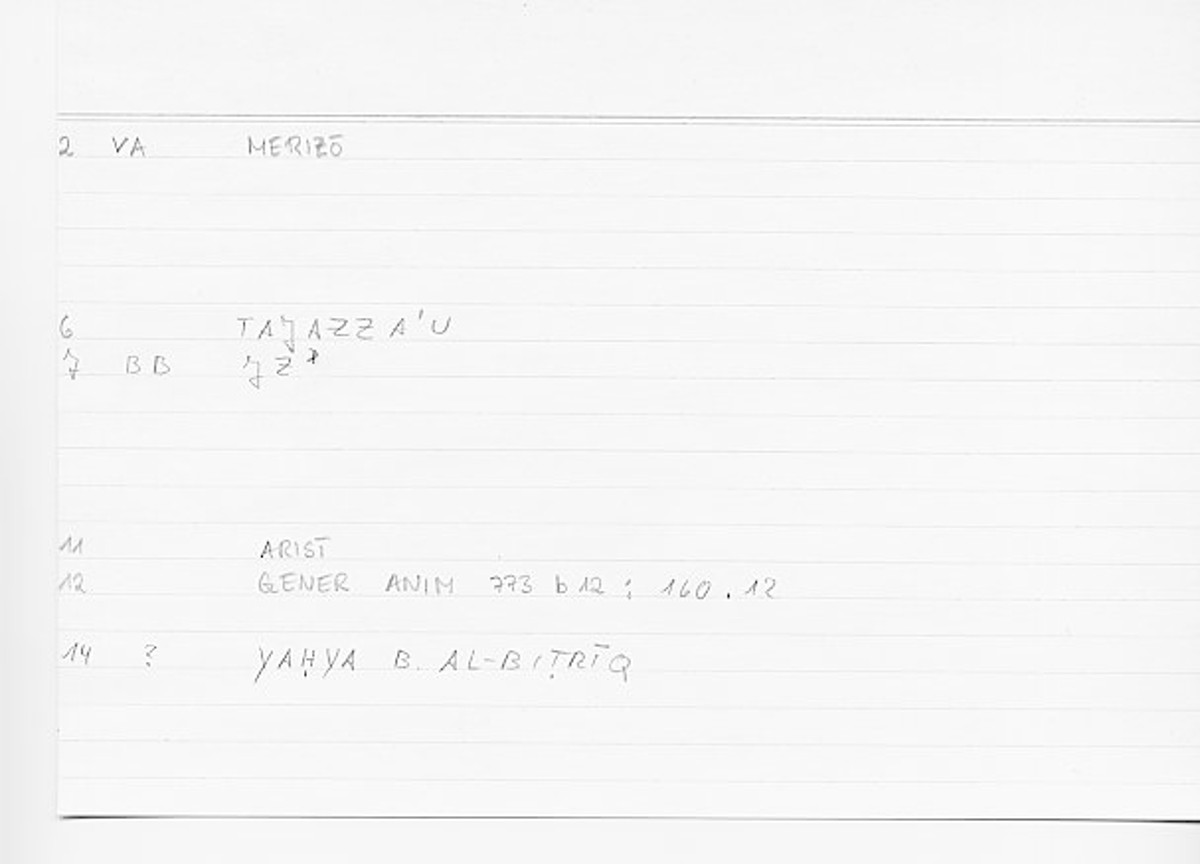 2 VA MERIZŌ
6 TAJAZZA'U
7 BB JZ*
11 ARIST
12 GENER ANIM 773 b 12 ; 160.12
14 ? YAḤYA B. AL-BIṬRĪQ